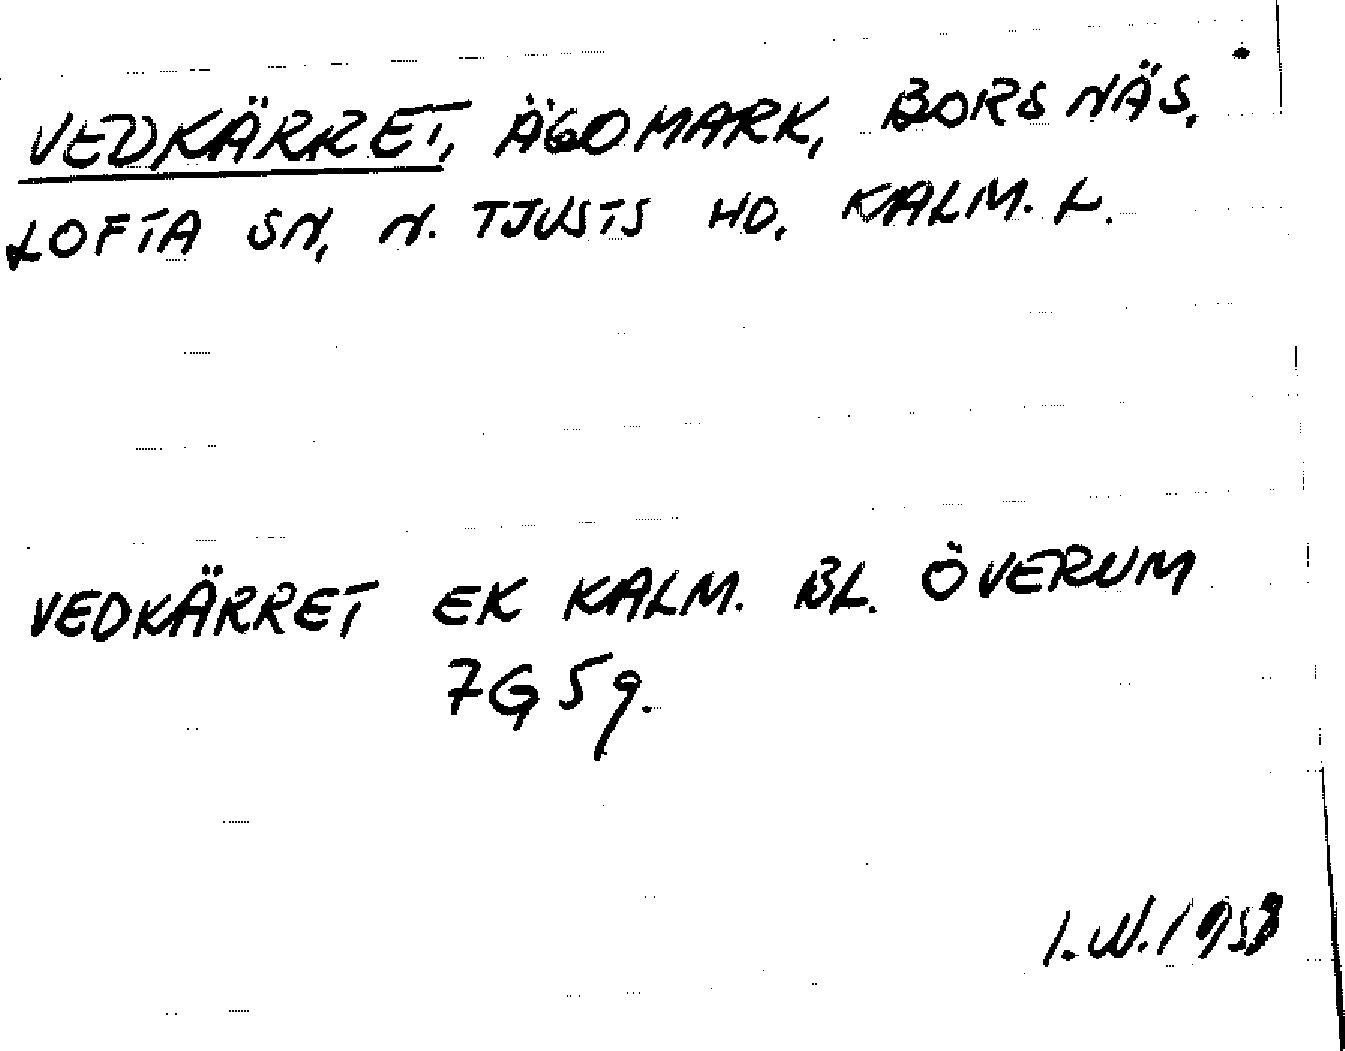 VEDKÄRRET, ÄGOMARK, BORSNÄS,
LOFTA SN, N. TJUSTS HD, KALM. L.
VEDKÄRRET EK KALM. BL. ÖVERUM
7G 5g.
I.W. 1958